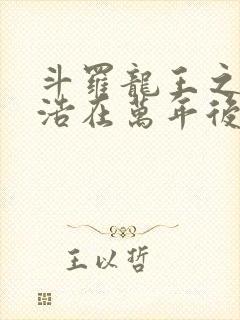 斗羅龍王之
浩在萬年後
王以哲